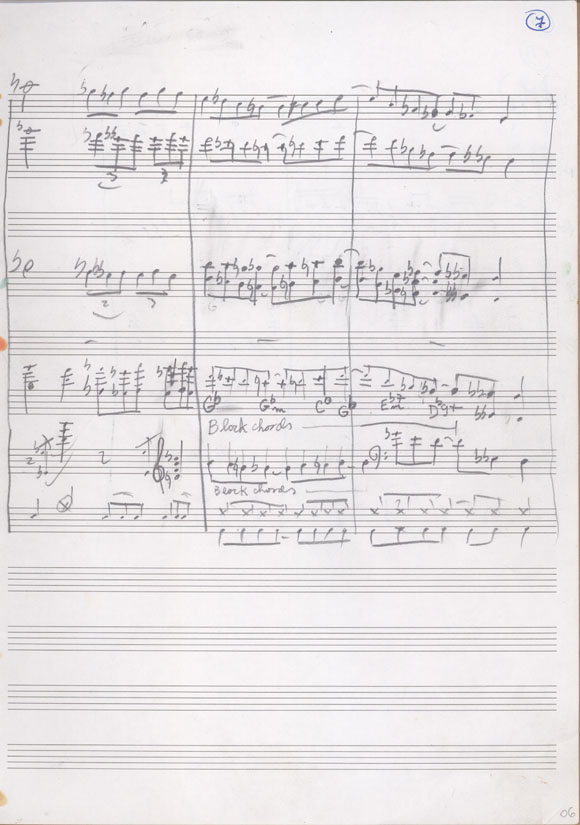 7
3 3
2 3
G♭ G♭m C⁰ G♭
Block chords
Block chords
06